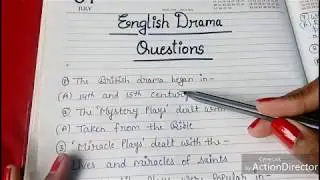 JULY
English Drama
Questions
① The British drama began in-
(A) 14th and 15th century
② The 'Mystery Plays' dealt with
(A) Taken from the Bible
③ 'Miracle Plays' dealt with the-
Lives and miracles of saints
Plays were Popular in
ActionDirector